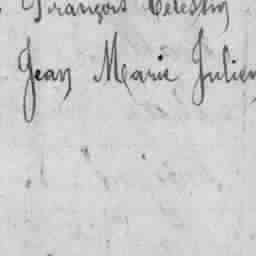 François Célestin
Jean Marie Julien